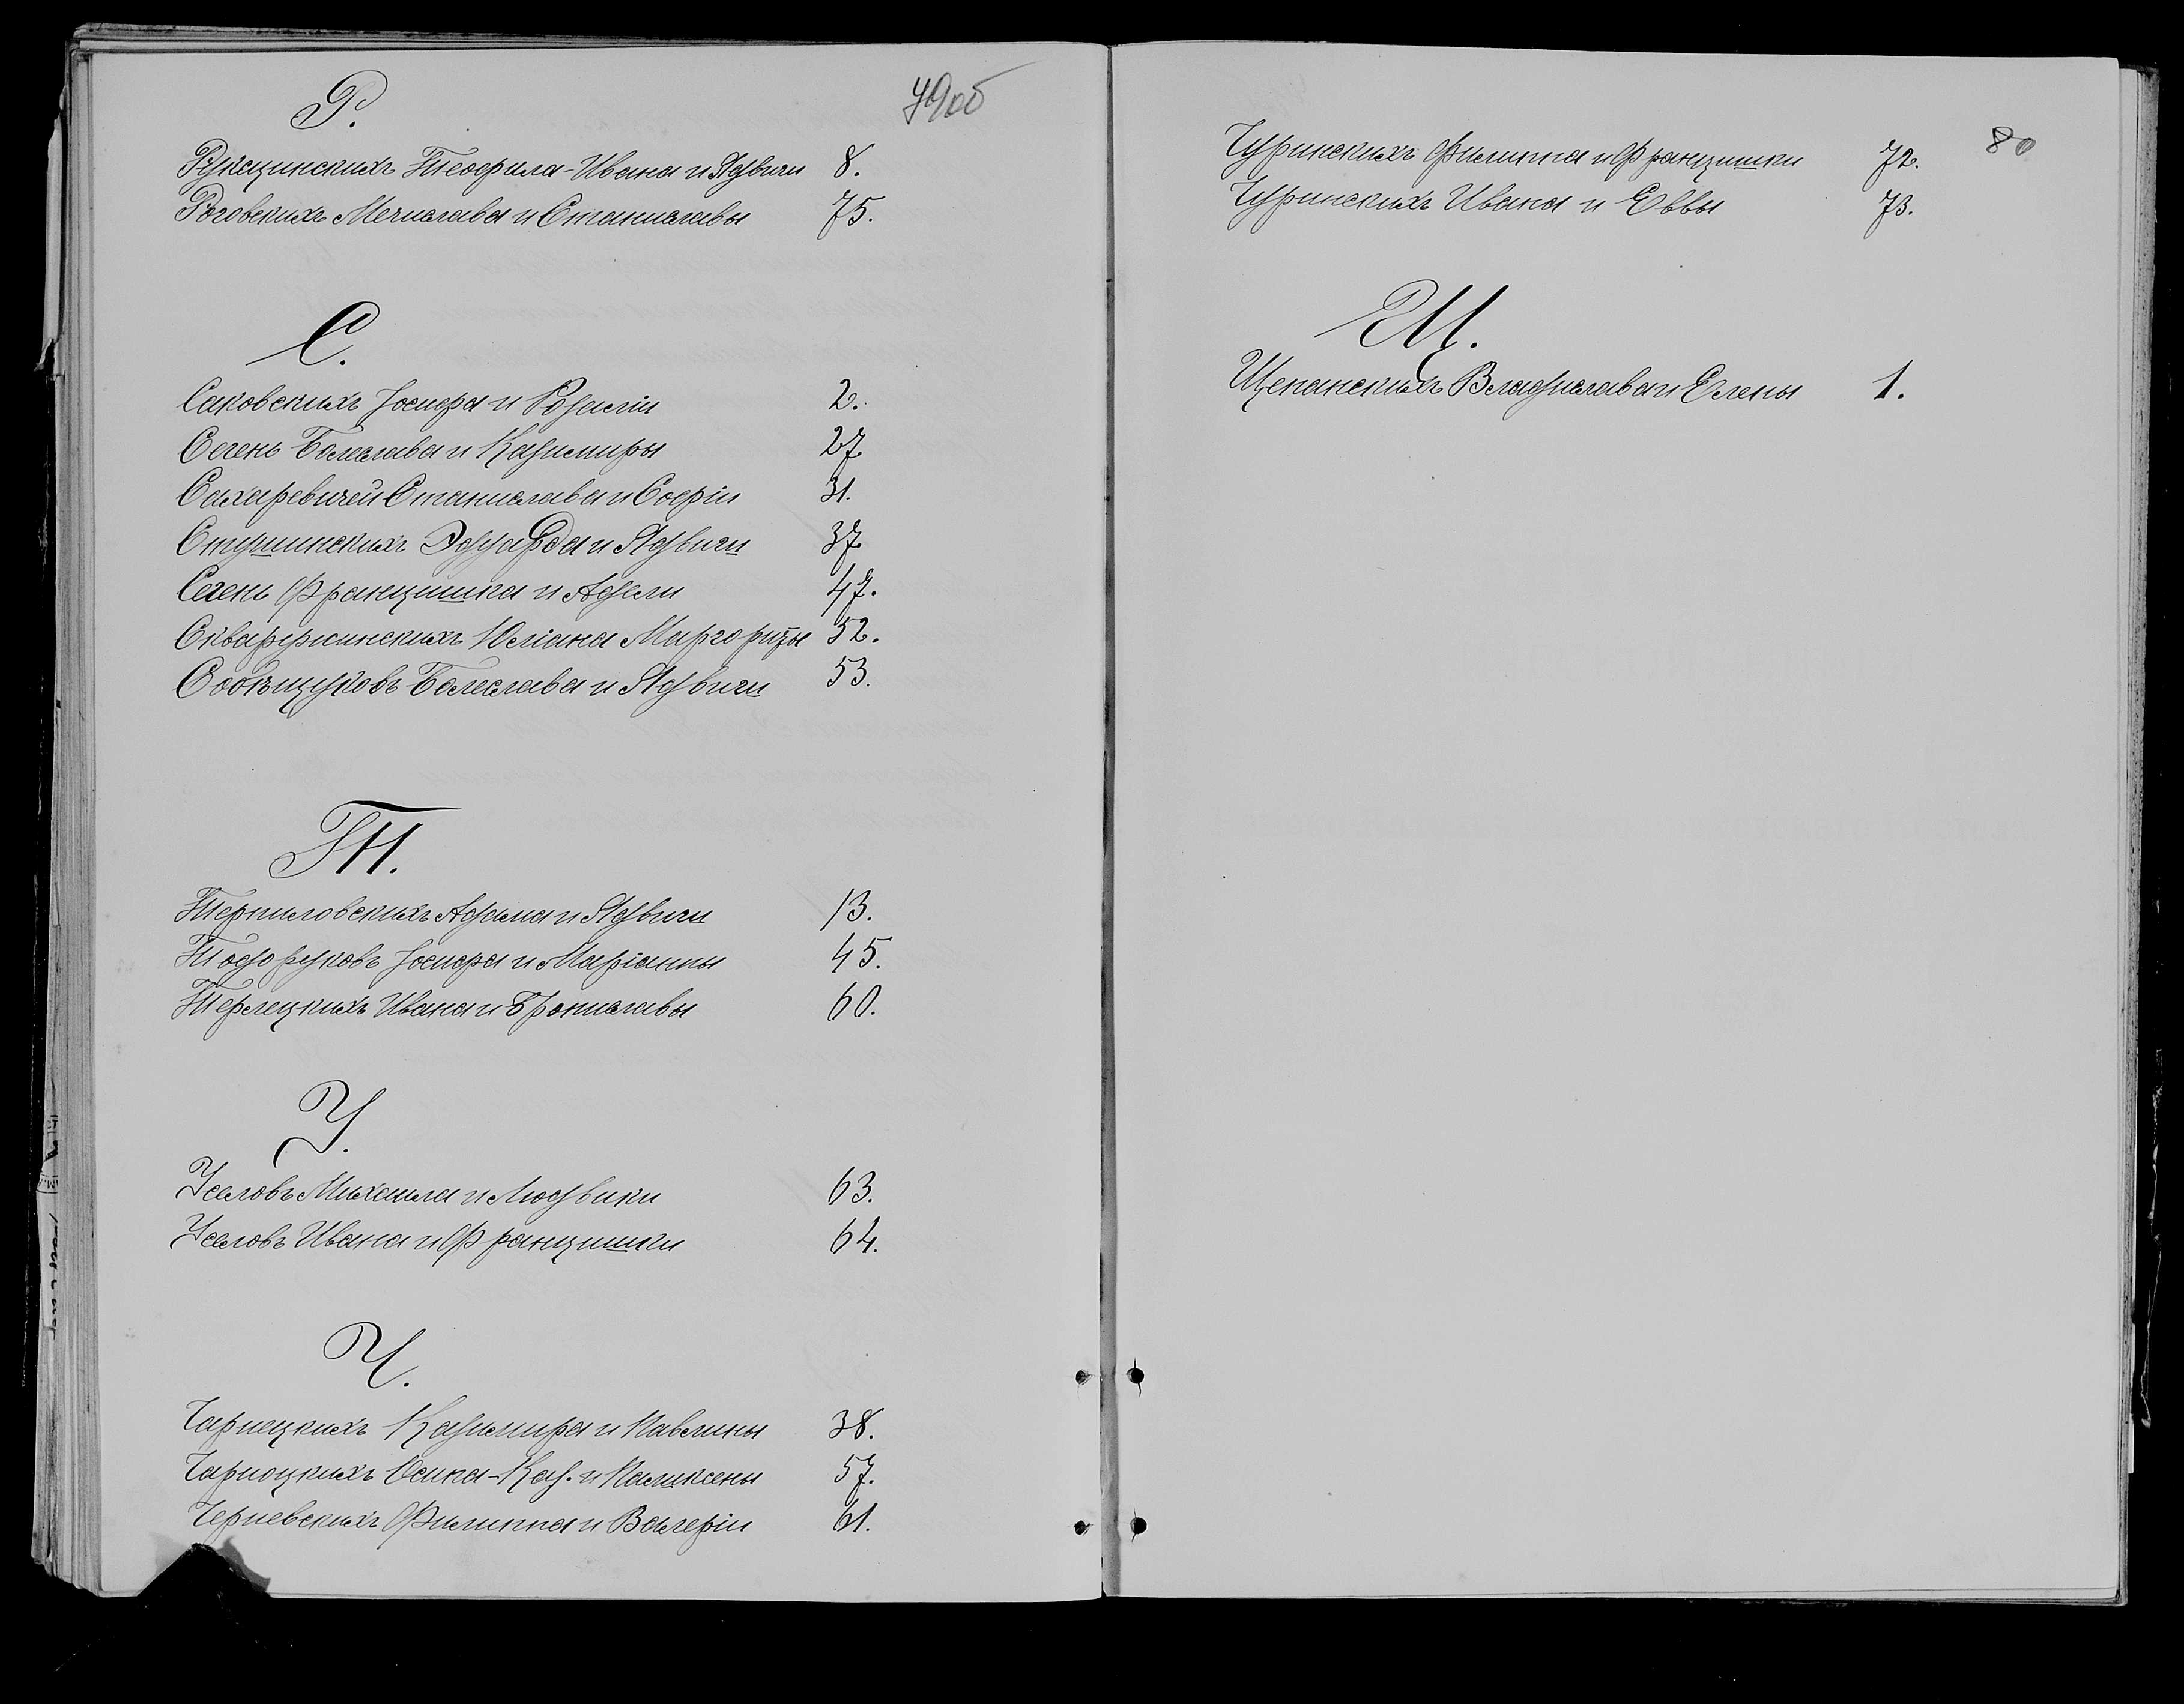 79об
Р.
Рукецинскихъ Теофила-Ивана и Ядвиги 8.
Роговскихъ Мечислава и Станиславы 75.
С.
Саковскихъ Іосифа и Розаліи 2.
Сегень Болеслава и Казимиры 27.
Сахаревичей Станислава и Софіи 31.
Стушинскихъ Эдуарда и Ядвиги 37.
Сегень Францишка и Адели 47.
Скваржинскихъ Юліана Маргориты 52.
Болеслава и Ядвиги 53.
Т.
Терпиловскихъ Адама и Ядвиги 13.
Тодоруковъ Іосифа и Маріанны 45.
Терлецкихъ Ивана и Брониславы 60.
У.
Усаловъ Михаила и Людвики 63.
Усаловъ Ивана и Францишки 64.
Ч.
Чарнецкихъ Казимира и Павлины 38.
Чарноцкихъ Осипа-Каз. и Камиксены 57.
Черневскихъ Филиппа и Валеріи 61.
80
Чуринскихъ Филиппа и Францишки 72.
Чуринскихъ Ивана и Еввы 73.
Щ.
Щепанскихъ Владислава и Елены 1.